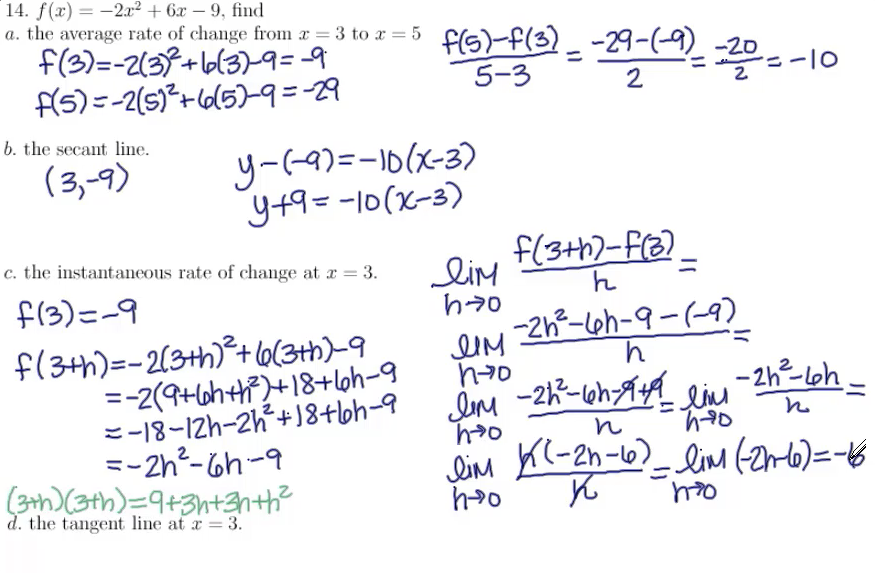 14. f(x) = −2x² + 6x − 9, find
a. the average rate of change from x = 3 to x = 5
f(3)=-2(3)²+6(3)-9= -9
f(5)=-2(5)²+6(5)-9=-29
(f(5)-f(3))/(5-3) = (-29-(-9))/2 = -20/2 = -10
b. the secant line.
(3,-9)
y-(-9)=-10(x-3)
y+9= -10(x-3)
c. the instantaneous rate of change at x = 3.
f(3)=-9
f(3+h)=-2(3+h)²+6(3+h)-9
=-2(9+6h+h²)+18+6h-9
=-18-12h-2h²+18+6h-9
=-2h²-6h-9
(3+h)(3+h)=9+3h+3h+h²
lim h→0 (f(3+h)-f(3))/h =
lim h→0 (-2h²-6h-9-(-9))/h =
lim h→0 (-2h²-6h-9+9)/h = lim h→0 (-2h²-6h)/h =
lim h→0 h(-2h-6)/h = lim h→0 (-2h-6)=-6
d. the tangent line at x = 3.